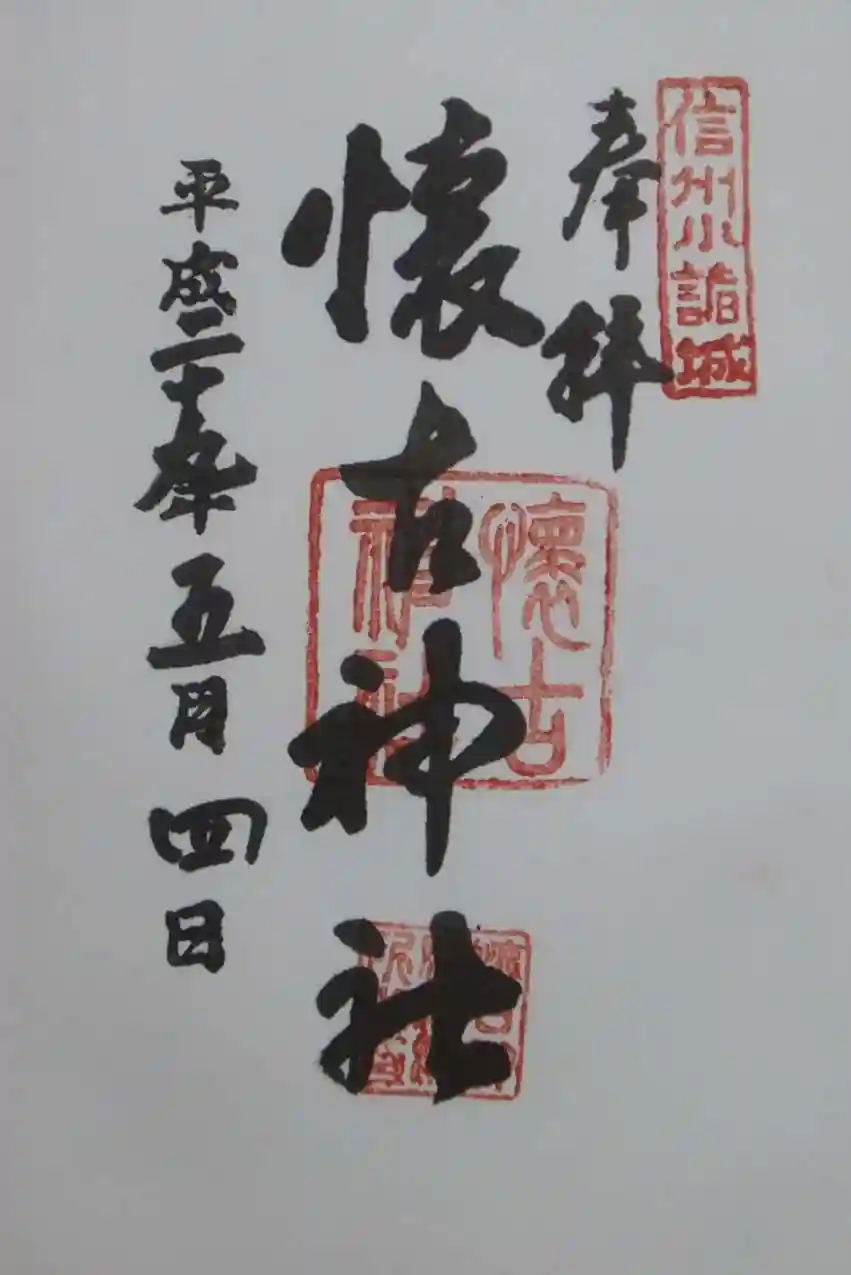 信州小諸城
奉拝
懐古神社
懐古
神社
平成二十九年五月四日